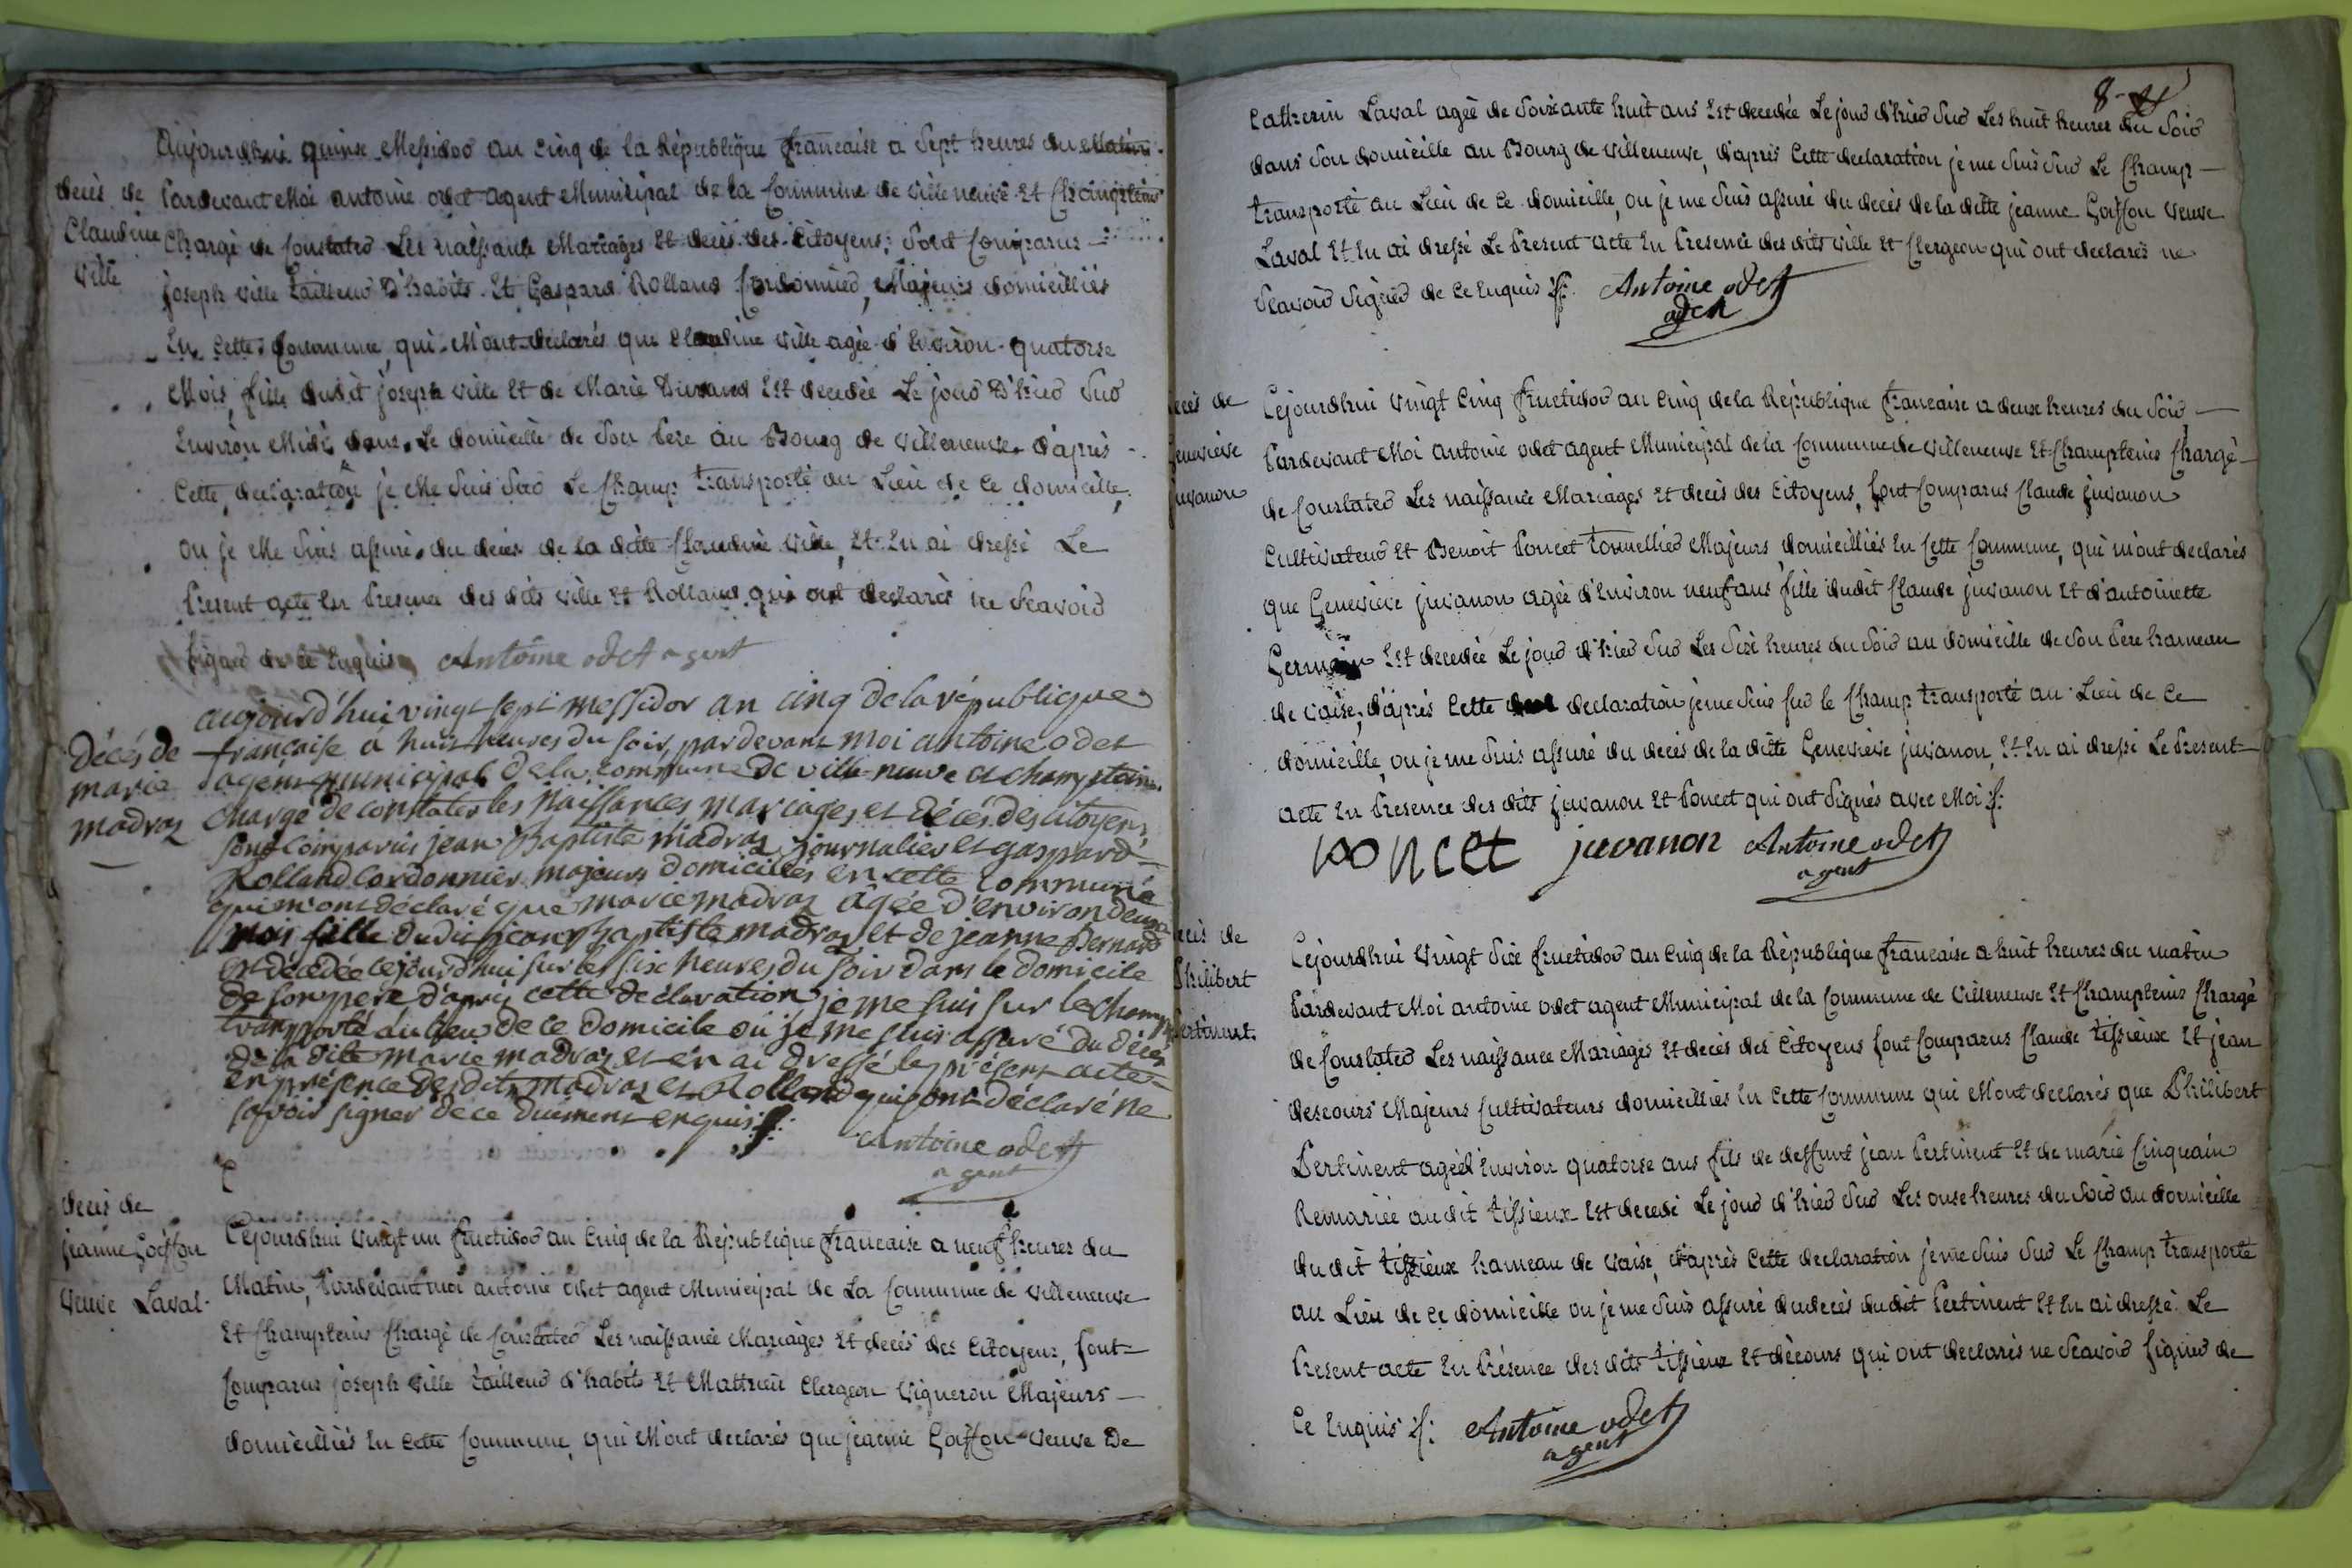 Aujourdhui quinze Messidor an cinq de la République francaise a Sept heures du Matin
decès de
Claudine
Ville
Pardevant Moi antoine odet agent Municipal de la Commune de Villeneuve Et Champteins
Chargé de Constater Les naissance Mariages Et decès des Citoyens, Sont Comparus
joseph ville Tailleur D'habits Et Gaspard Rolland Cordonnier, Majeurs domicilliés
En Cette Commune, qui M'ont declarés que Claudine Ville agée d'Environ quatorze
Mois, fille dudit joseph Ville Et de Marie Durand Est decedée Le jour D'hier Sur
Environ Midi dans Le domicille de Son Pere au Bourg de Villeneuve. d'après
Cette declaration je Me Suis Sur Le Champ transporté au Lieu de Ce domicille,
ou je Me Suis assuré du decès de la ditte Claudine Ville, Et En ai dressé Le
Present acte En Presence des dits Ville Et Rolland qui ont declarés ne Scavoir
Signer de Ce Enquis Antoine odet agent
aujourd'hui vingt sept messidor an cinq de la république
Décés de
marie
madras
française à huit heures du soir, pardevant moi antoine odet
agent municipal de la commune de ville-neuve et champteins
chargé de constater les naissances mariages et décés des citoyens
sont comparus jean Baptiste madras journalier et gaspard
Rolland Cordonnier majeurs domiciliés en cette commune
qui m'ont déclaré que marie madras âgée d'environ deux
mois fille dudit jean baptiste madras et de jeanne Bernard
est décédée cejourd'hui sur les six heures du soir dans le domicile
de son pere d'après cette déclaration, je me suis sur le champ
transporté au lieu de ce domicile où je me suis assuré du décès
de la dite marie madras et en ai dressé le présent acte
en présence desdits madras et Rolland qui ont déclaré ne
savoir signer de ce duement enquis
Antoine odet
agent
decès de
jeanne Goiffon
Veuve Laval
Cejourdhui Vingt un fructidor an Cinq de la République francaise a neuf heures du
Matin, Pardevant moi antoine odet agent Municipal de La Commune de Villeneuve
Et Champteins Chargé de Constater Les naissance Mariages Et decès des Citoyens, Sont
Comparus joseph Ville Tailleur d'habits Et Matthieu Clergeon Vigneron Majeurs
domicilliés En Cette Commune, qui M'ont declarés que jeanne Goiffon Veuve De
8
Catherin Laval agée de Soixante huit ans Est decedée Le jour d'hier Sur Les huit heures du Soir
dans Son domicille au Bourg de Villeneuve, d'après Cette declaration je me Suis Sur Le Champ
transporté au Lieu de Ce domicille, ou je me Suis assuré du decès de la ditte jeanne Goiffon Veuve
Laval Et En ai dressé Le Present acte En Presence des dits Ville Et Clergeon qui ont declarés ne
Scavoir Signer de Ce Enquis Antoine odet
agent
decès de
Genevieve
juvanon
Cejourdhui Vingt Cinq fructidor an Cinq de la République francaise a deux heures du Soir
Pardevant Moi antoine odet agent Municipal de la Commune de Villeneuve Et Champteins Chargé
de Constater Les naissance Mariages Et decès des Citoyens, Sont Comparus Claude juvanon
Cultivateur Et Benoit Poncet Tonnellier Majeurs domicilliés En Cette Commune, qui m'ont declarés
que Genevieve juvanon agée d'Environ neuf ans fille dudit Claude juvanon Et d'antoinette
Germain Est decedée Le jour d'hier Sur Les Six heures du Soir au domicille de Son Pere hameau
de Vaise, d'après Cette declaration je me Suis Sur le Champ transporté au Lieu de Ce
domicille, ou je me Suis assuré du decès de la ditte Genevieve juvanon, Et En ai dressé Le Present
acte En Presence des dits juvanon Et Poncet qui ont Signés avec Moi
poncet juvanon Antoine odet
agent
decès de
Philibert
Pertinent
Cejourdhui Vingt Six fructidor an Cinq de la République francaise a huit heures du matin
Pardevant Moi antoine odet agent Municipal de la Commune de Villeneuve Et Champteins Chargé
de Constater Les naissance Mariages Et decès des Citoyens Sont Comparus Claude Tissieux Et jean
descours Majeurs Cultivateurs domicilliés En Cette Commune qui M'ont declarés que Philibert
Pertinent agé d'Environ quatorse ans fils de deffunt jean Pertinent Et de marie Cinquain
Remariée audit Tissieux Est decedé Le jour d'hier Sur Les onse heures du Soir au domicille
dudit Tissieux hameau de Vaise, d'après Cette declaration je me Suis Sur Le Champ transporté
au Lieu de Ce domicille ou je me Suis assuré du decès dudit Pertinent Et En ai dressé Le
Present acte En Présence des dits Tissieux Et décours qui ont declarés ne Scavoir Signer de
Ce Enquis Antoine odet
agent